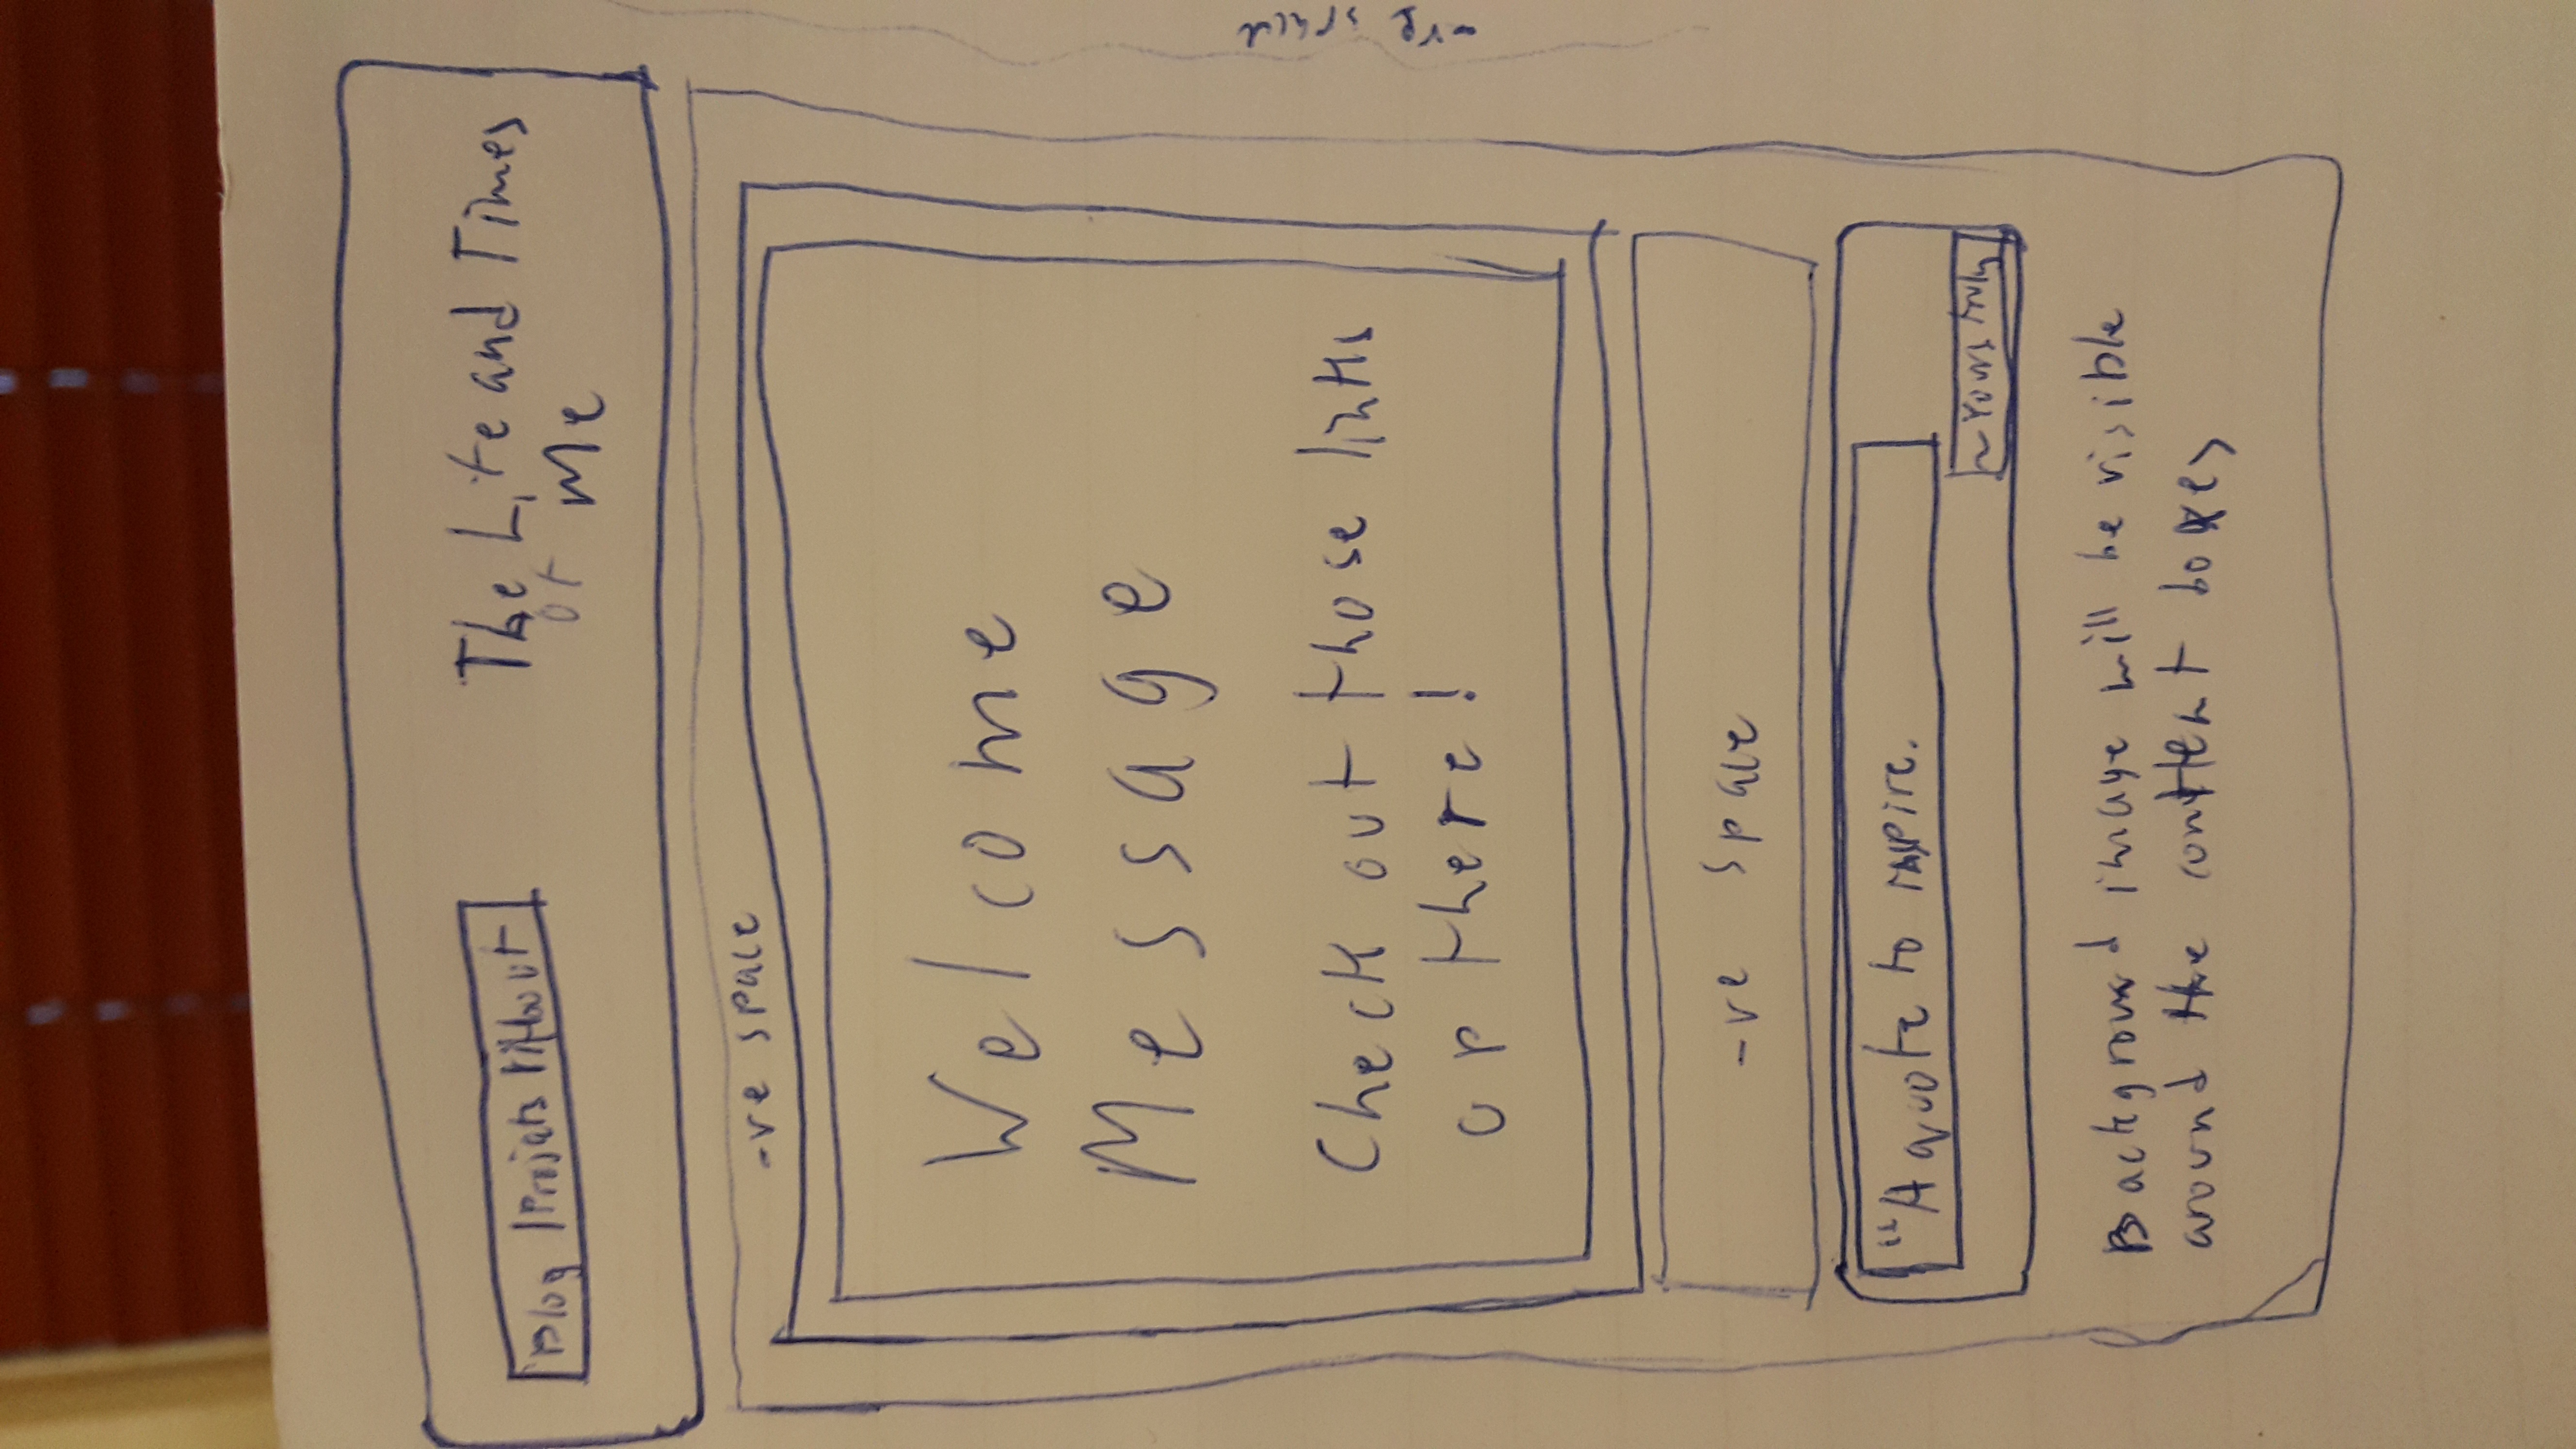 Blog | Projects | About
The Life and Times
of Me
-ve space
Welcome
Message
Check out those links
up there!
-ve space
-ve space
"A quote to inspire.
~ Yours truly
Background image will be visible
around the content boxes